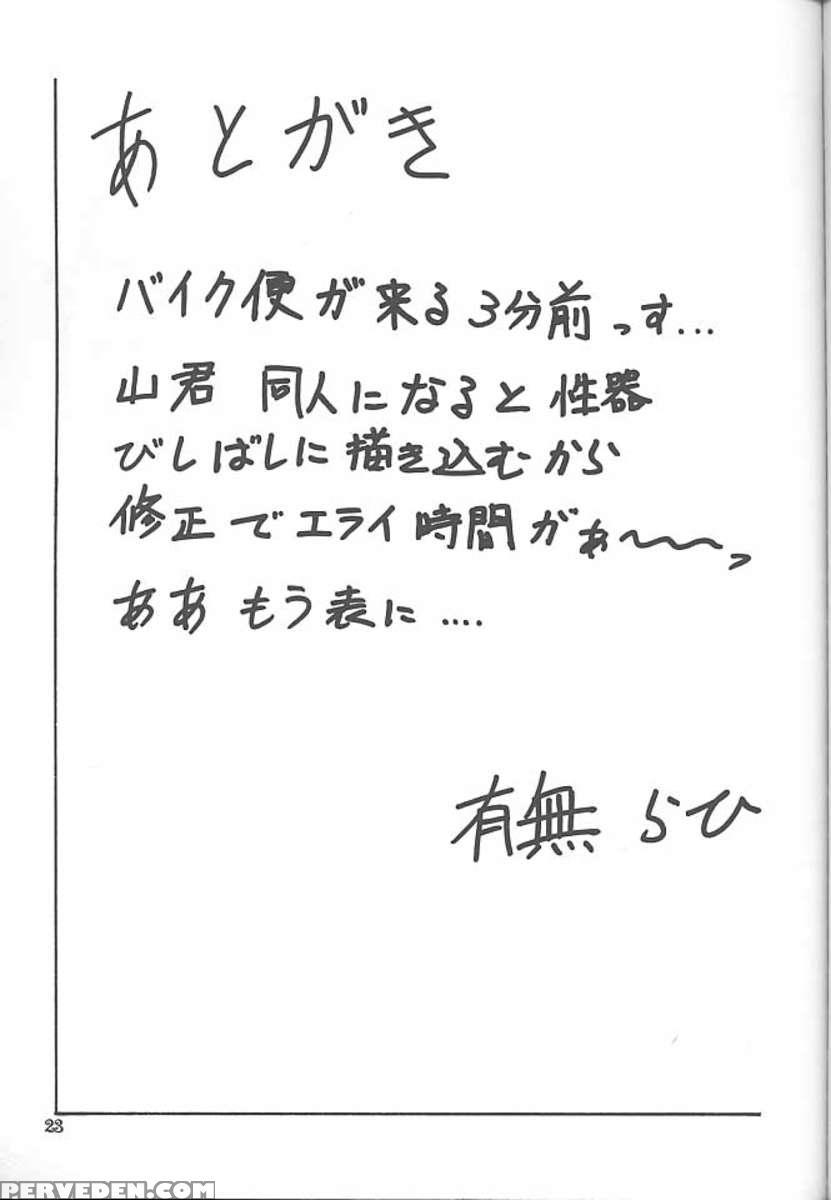 あとがき
バイク便が来る3分前っす...
山君 同人になると性器
びしばしに描き込むから
修正でエライ時間がぁ〜〜っ
ああ もう表に....
有無らひ
23
PERVEDEN.COM